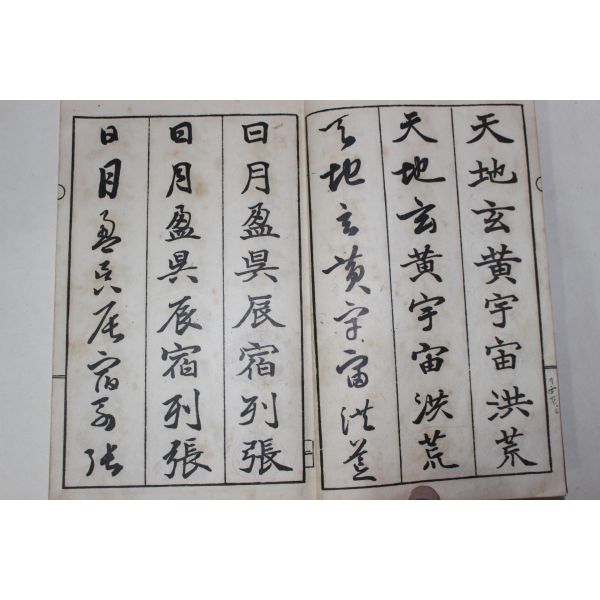 天地玄黄宇宙洪荒
天地玄黄宇宙洪荒
天地玄黄宇宙洪荒
日月盈昃辰宿列張
日月盈昃辰宿列張
日月盈昃辰宿列張